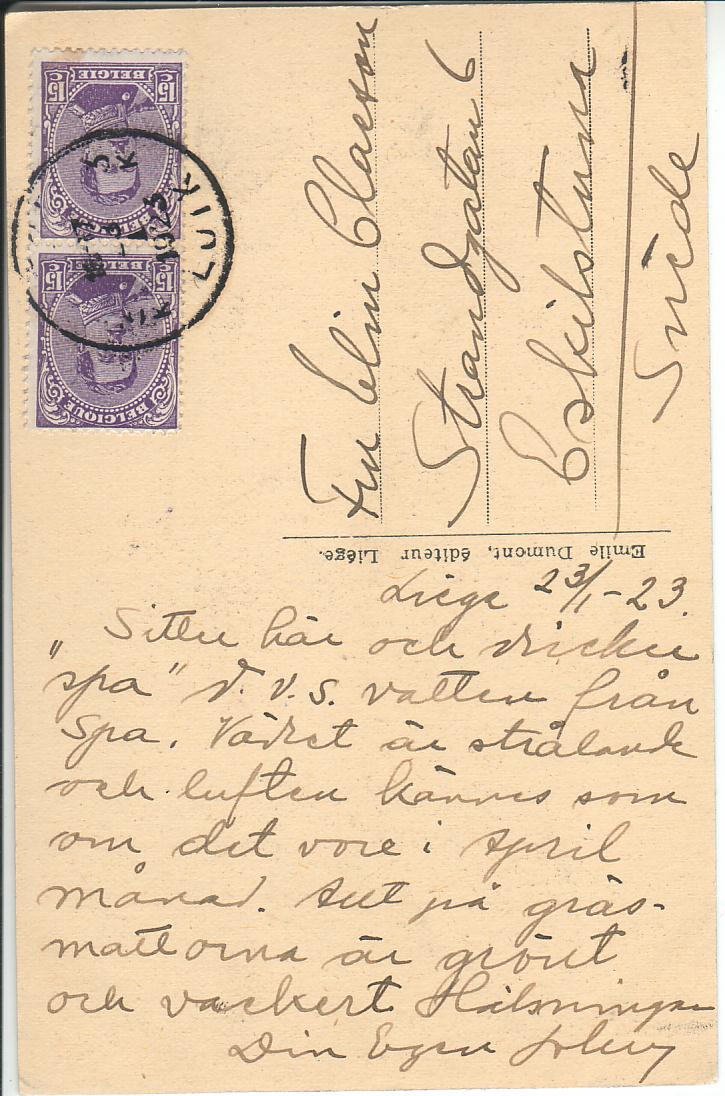 BELGIE
15 15
BELGIE
15 15
BELGIQUE
LUIK
1923
Fru Elin Claeson
Strandgatan 6
Eskilstuna
Suède
Emile Dumont, éditeur Liége.
Liège 23/1-23.
Sitter här och dricker
"spa" d.v.s. vatten från
Spa. Vädret är strålande
och luften kännes som
om det vore i April
månad. Allt på gräs-
mattorna är grönt
och vackert Hälsningar
Din Egen